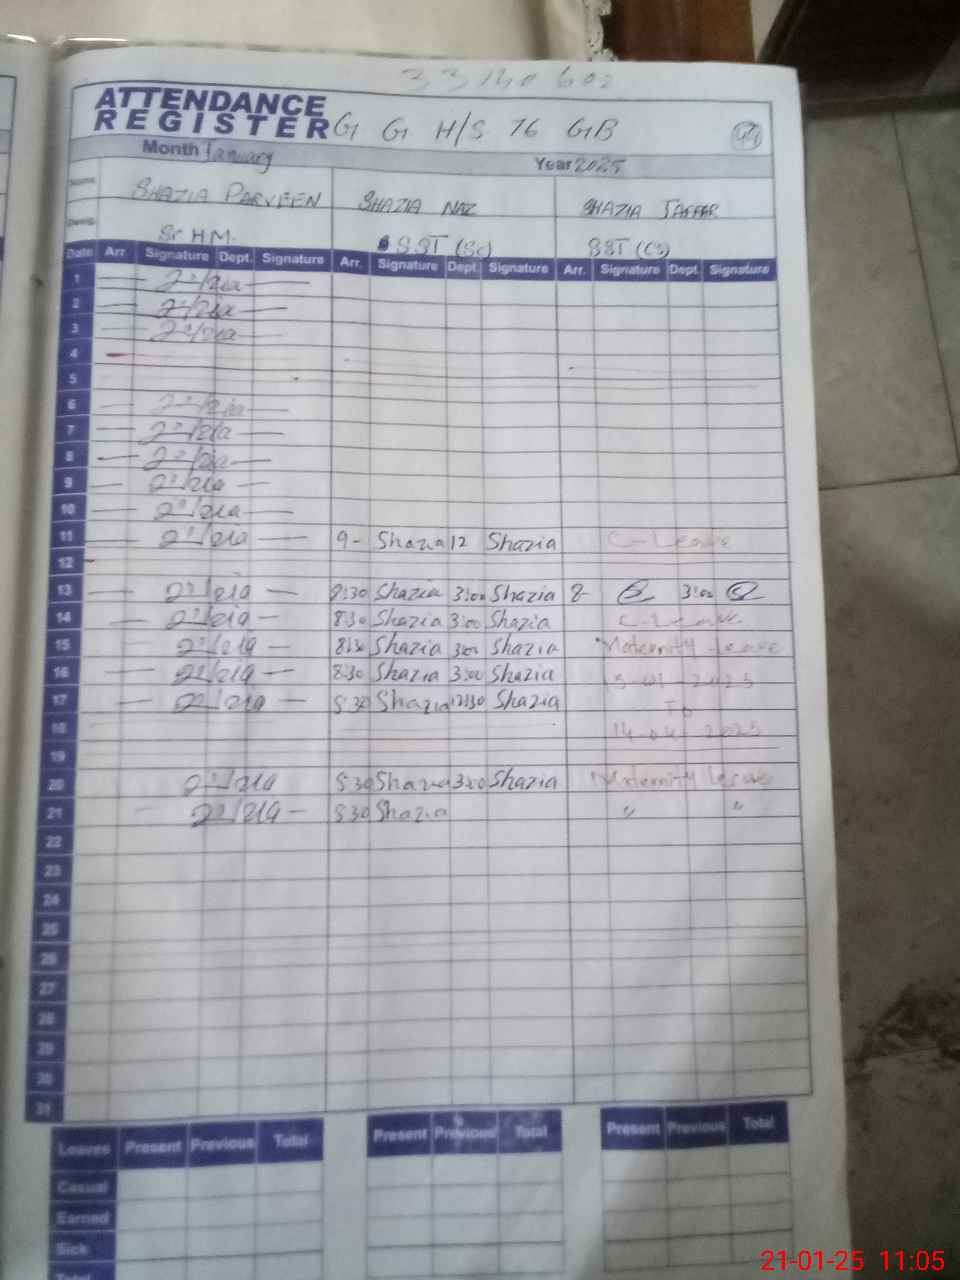 33140602
ATTENDANCE
REGISTER G G H/S 76 GB 44
Month January Year 2025
Name SHAZIA PARVEEN SHAZIA NAZ SHAZIA JAFFAR
Desig: Sr. H.M. SST (Sc) SST (CS)
Date Arr. Signature Dept. Signature Arr. Signature Dept. Signature Arr. Signature Dept. Signature
1
2
3
4
5
6
7
8
9
10
11 9- Shazia 12 Shazia C-Leave
12
13 8:30 Shazia 3:00 Shazia 8- 3:00
14 8:30 Shazia 3:00 Shazia C-Leave
15 8:30 Shazia 3:00 Shazia Maternity Leave
16 8:30 Shazia 3:00 Shazia 15-01-2025
17 8 30 Shazia 12:30 Shazia To
18 14-04-2025
19
20 8 30 Shazia 3:00 Shazia Maternity Leave
21 8 30 Shazia " "
22
23
24
25
26
27
28
29
30
31
Leaves Present Previous Total Present Previous Total Present Previous Total
Casual
Earned
Sick
Total
21-01-25 11:05